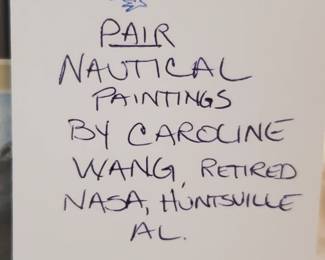 PAIR
NAUTICAL
PAINTINGS
BY CAROLINE
WANG, RETIRED
NASA, HUNTSVILLE
AL.